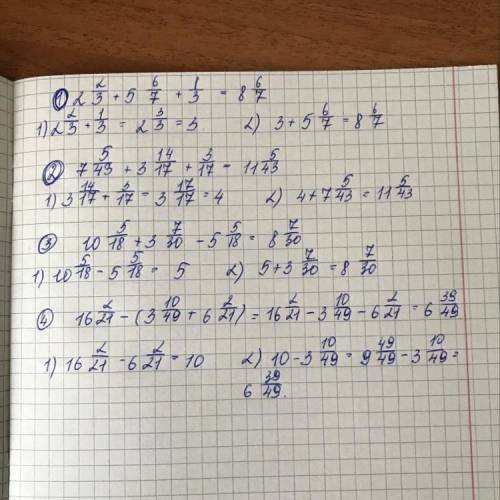 ① 2 2/3 + 5 6/7 + 1/3 = 8 6/7
1) 2 2/3 + 1/3 = 2 3/3 = 3 2) 3 + 5 6/7 = 8 6/7
② 7 5/43 + 3 14/17 + 3/17 = 11 5/43
1) 3 14/17 + 3/17 = 3 17/17 = 4 2) 4 + 7 5/43 = 11 5/43
③ 10 5/18 + 3 7/30 - 5 5/18 = 8 7/30
1) 10 5/18 - 5 5/18 = 5 2) 5 + 3 7/30 = 8 7/30
④ 16 2/21 - (3 10/49 + 6 2/21) = 16 2/21 - 3 10/49 - 6 2/21 = 6 39/49
1) 16 2/21 - 6 2/21 = 10 2) 10 - 3 10/49 = 9 49/49 - 3 10/49 =
6 39/49.